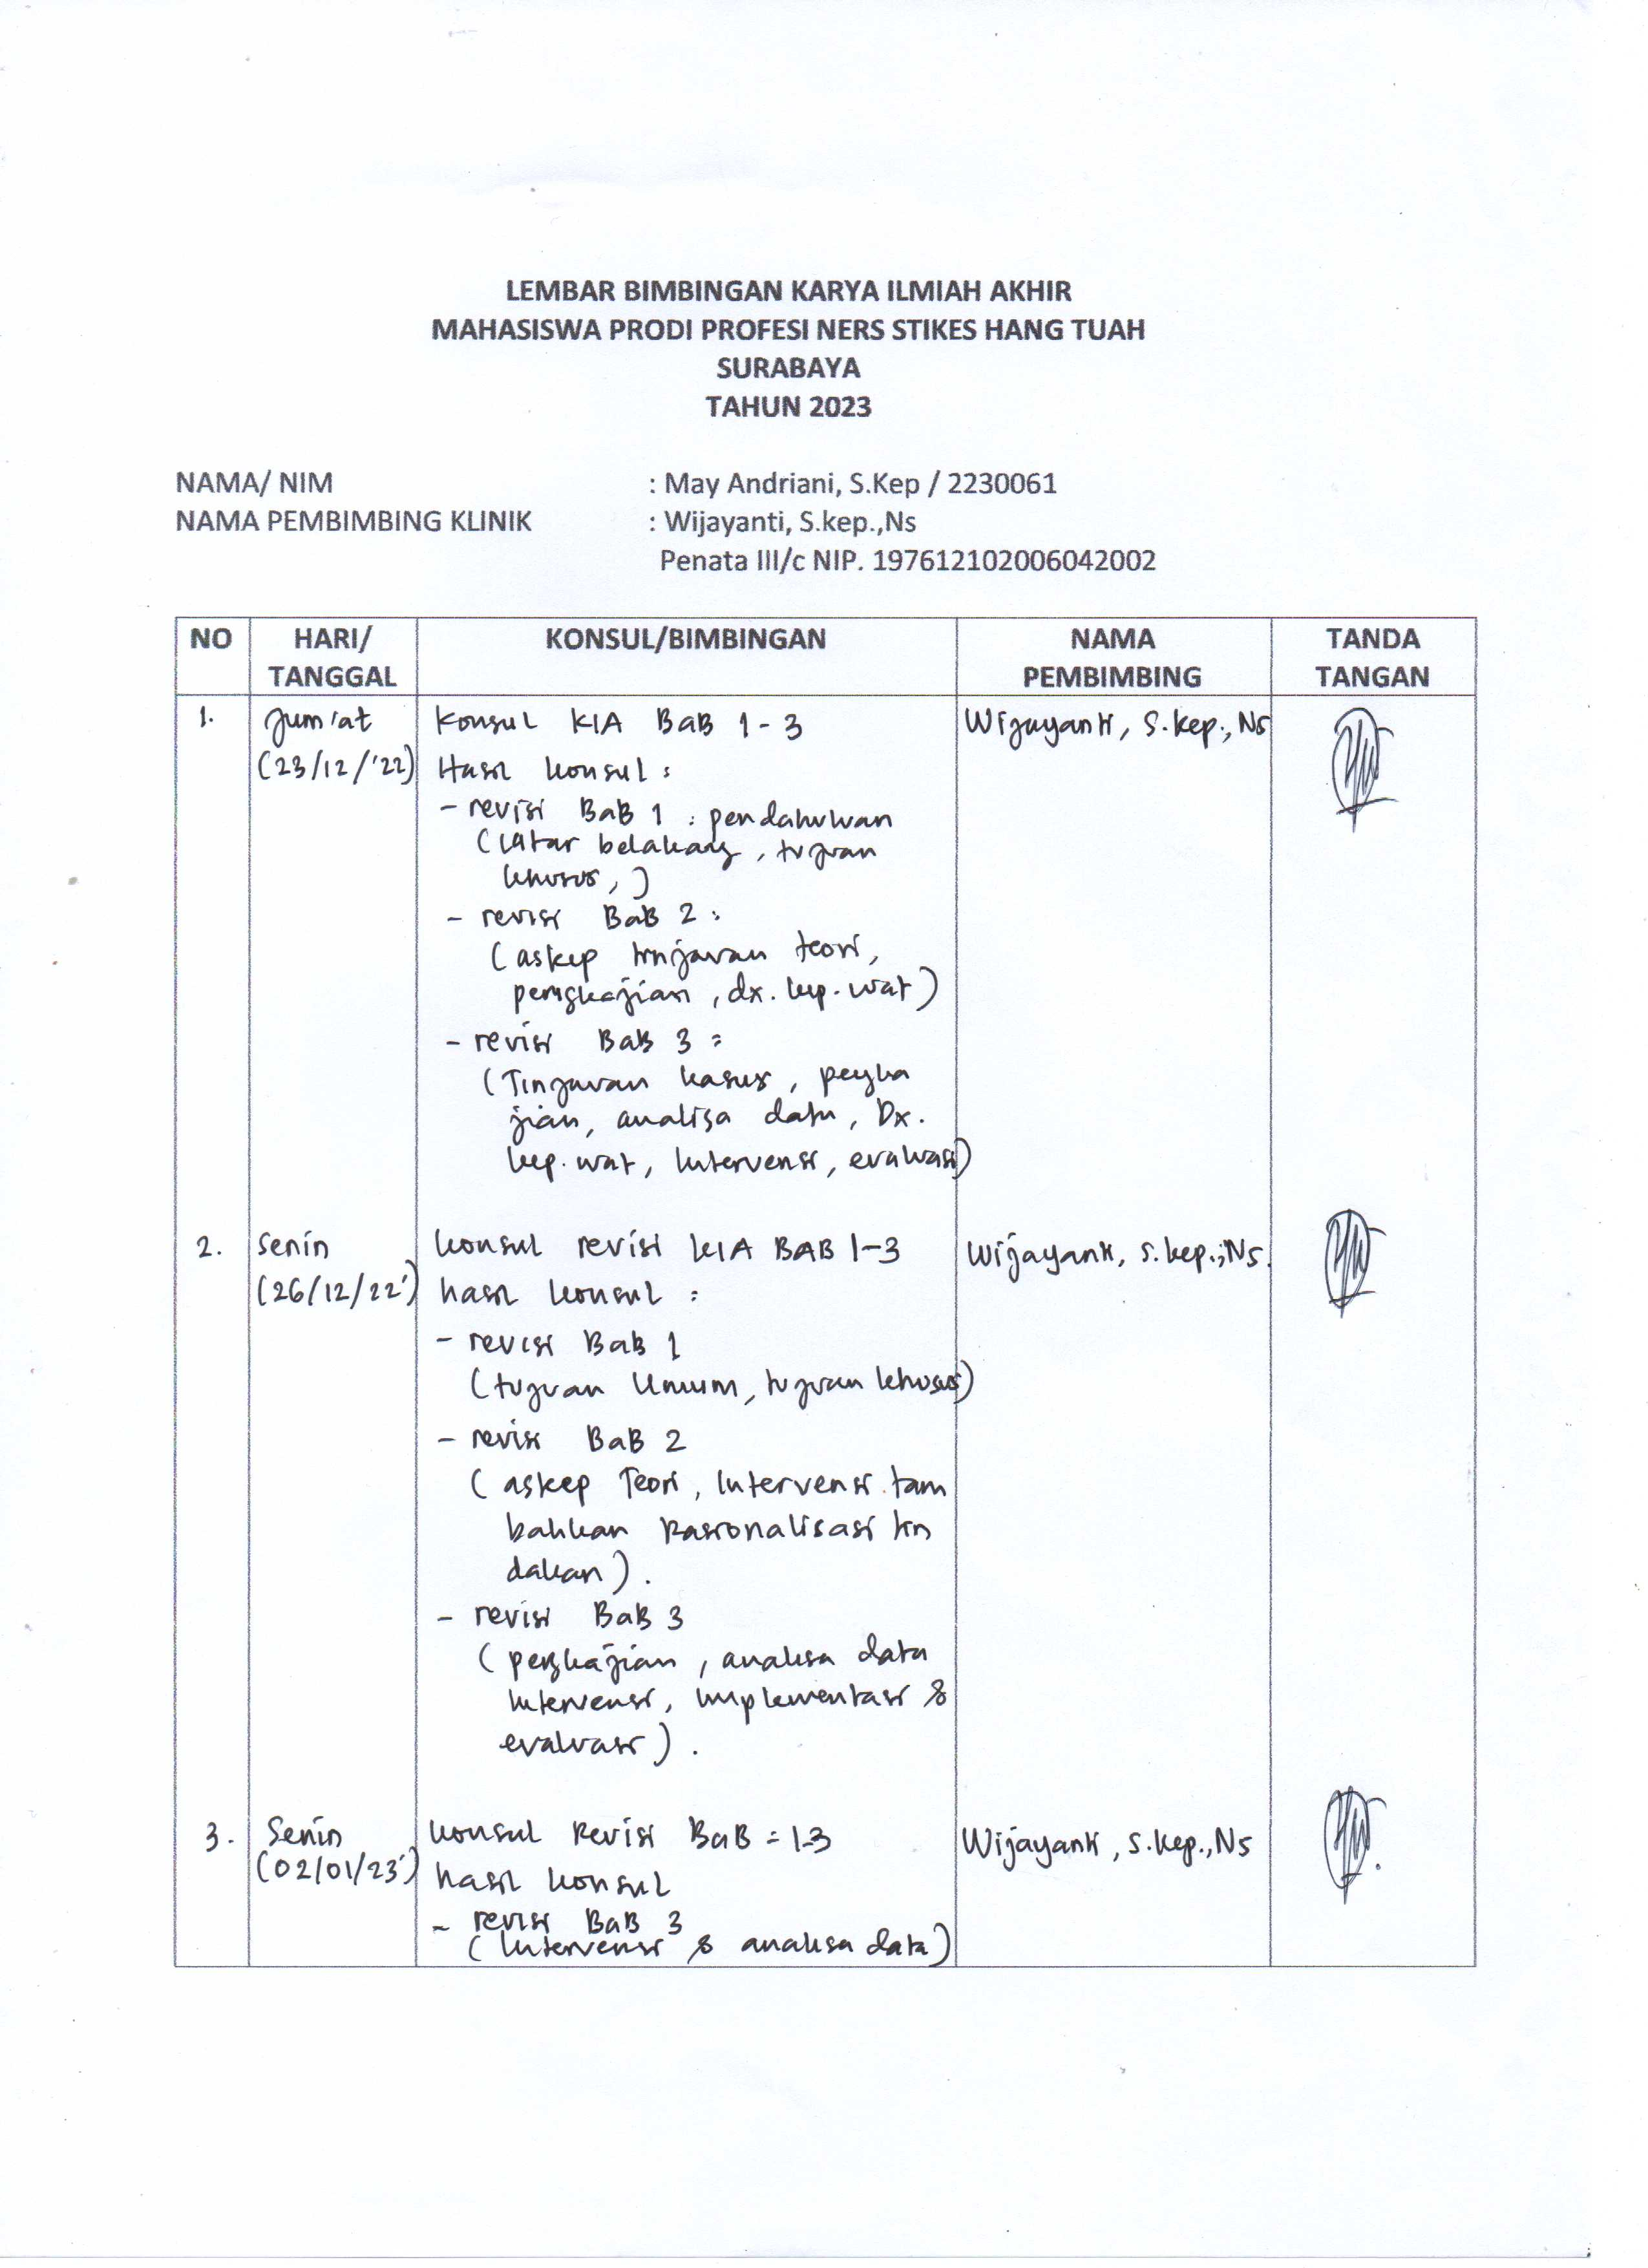 LEMBAR BIMBINGAN KARYA ILMIAH AKHIR
MAHASISWA PRODI PROFESI NERS STIKES HANG TUAH
SURABAYA
TAHUN 2023
NAMA/ NIM : May Andriani, S.Kep / 2230061
NAMA PEMBIMBING KLINIK : Wijayanti, S.kep.,Ns
Penata III/c NIP. 197612102006042002
NO HARI/ TANGGAL KONSUL/BIMBINGAN NAMA PEMBIMBING TANDA TANGAN
1. Jum'at Konsul KIA BaB 1-3 Wijayanti, S.kep., Ns
(23/12/'22) Hasil konsul :
- revisi BaB 1 : pendahuluan
(latar belakang, tujuan
khusus, )
- revisi BaB 2 :
(askep tinjauan teori,
pengkajian, dx. kep. wat)
- revisi BaB 3 :
(Tinjauan kasus, pengka
jian, analisa data, Dx.
kep. wat, Intervensi, evaluasi)
2. Senin konsul revisi KIA BAB 1-3 Wijayanti, S.kep.,Ns.
(26/12/22') hasil konsul :
- revisi BaB 1
(tujuan Umum, tujuan khusus)
- revisi BaB 2
(askep Teori, Intervensi tam
bahkan Rasionalisasi tin
dakan).
- revisi BaB 3
(pengkajian, analisa data
Intervensi, Implementasi &
evaluasi).
3. Senin konsul Revisi BaB = 1-3 Wijayanti, S.kep.,Ns
(02/01/23') hasil konsul
- revisi BaB 3
(Intervensi & analisa data)